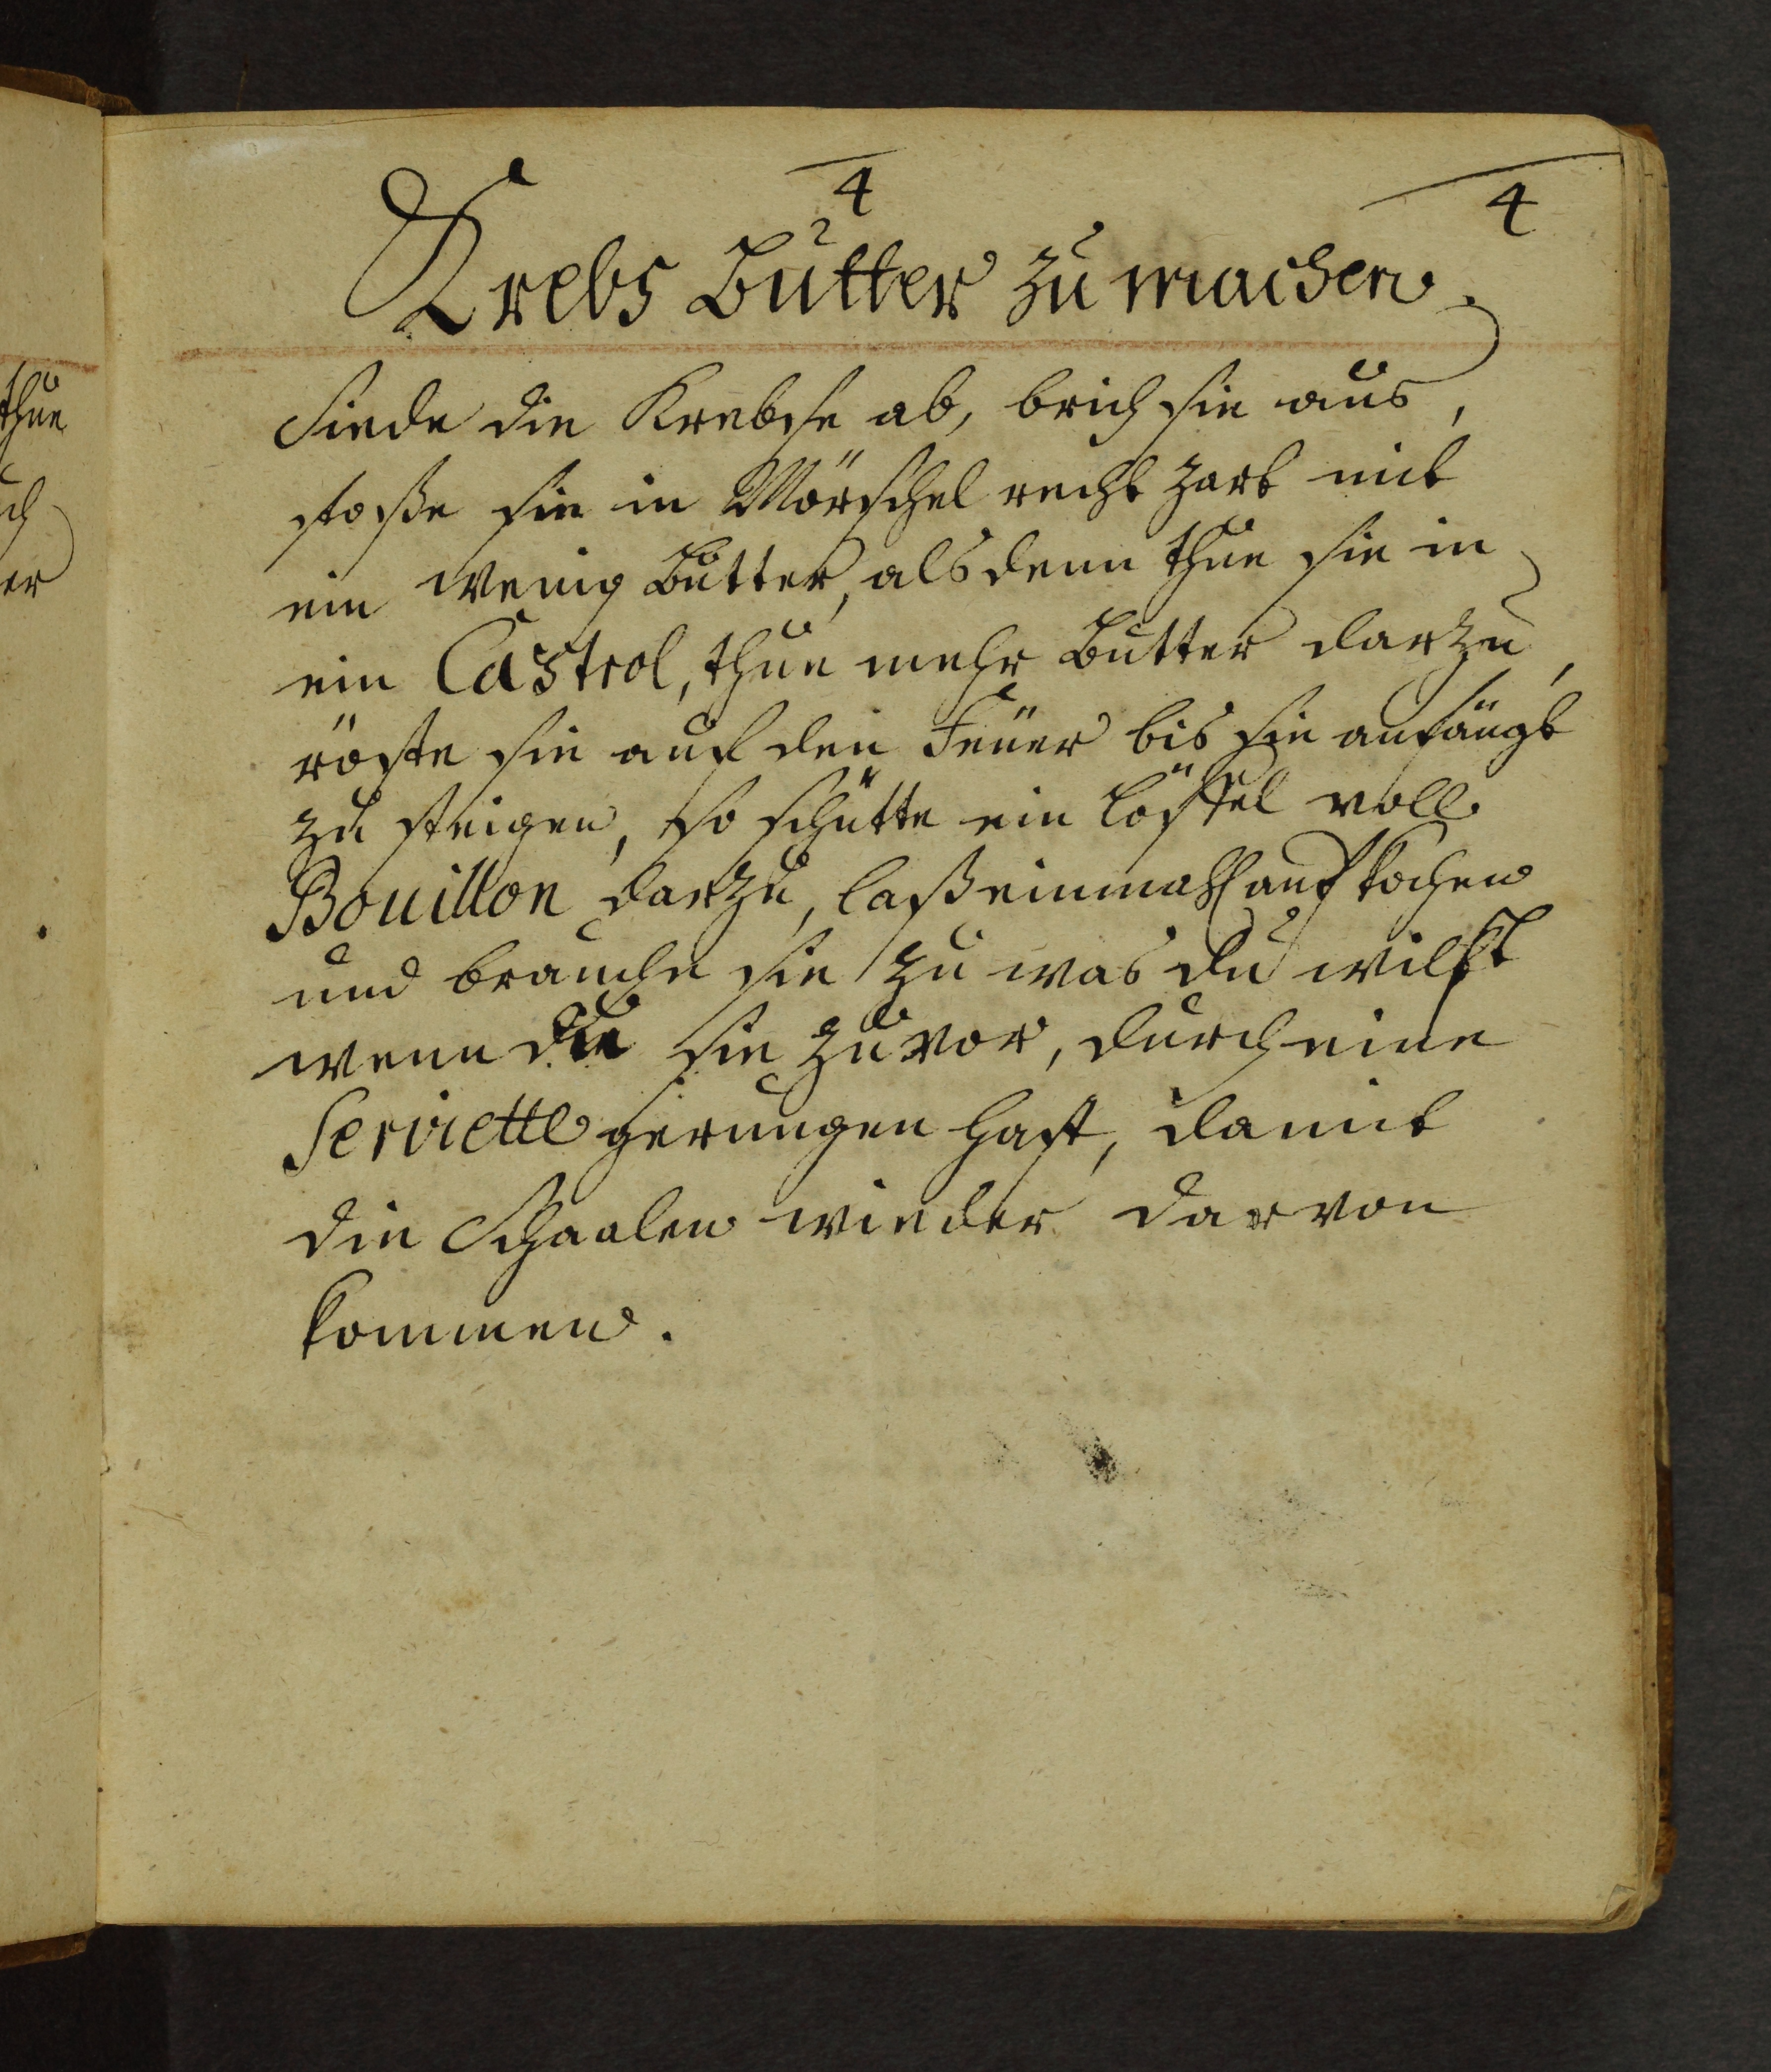 4
4
Krebs Butter zu machen.
Siede die Krebse ab, brich sie aus,
stoße sie in Mörschel recht zart mit
ein wenig Butter, alsdenn thue sie in
ein Castrol, thue mehr Butter darzu,
röste sie auf den Feuer bis sie anfängt
zu steigen, so schütte ein Löffel voll
Bouillon darzu, laß einmahl auf kochen
und brauche sie zu was du wilst
wenn du sie zuvor, durch eine
Serviette gerungen hast, damit
die Schaalen wieder darvon
kommen.
thue
ch
er